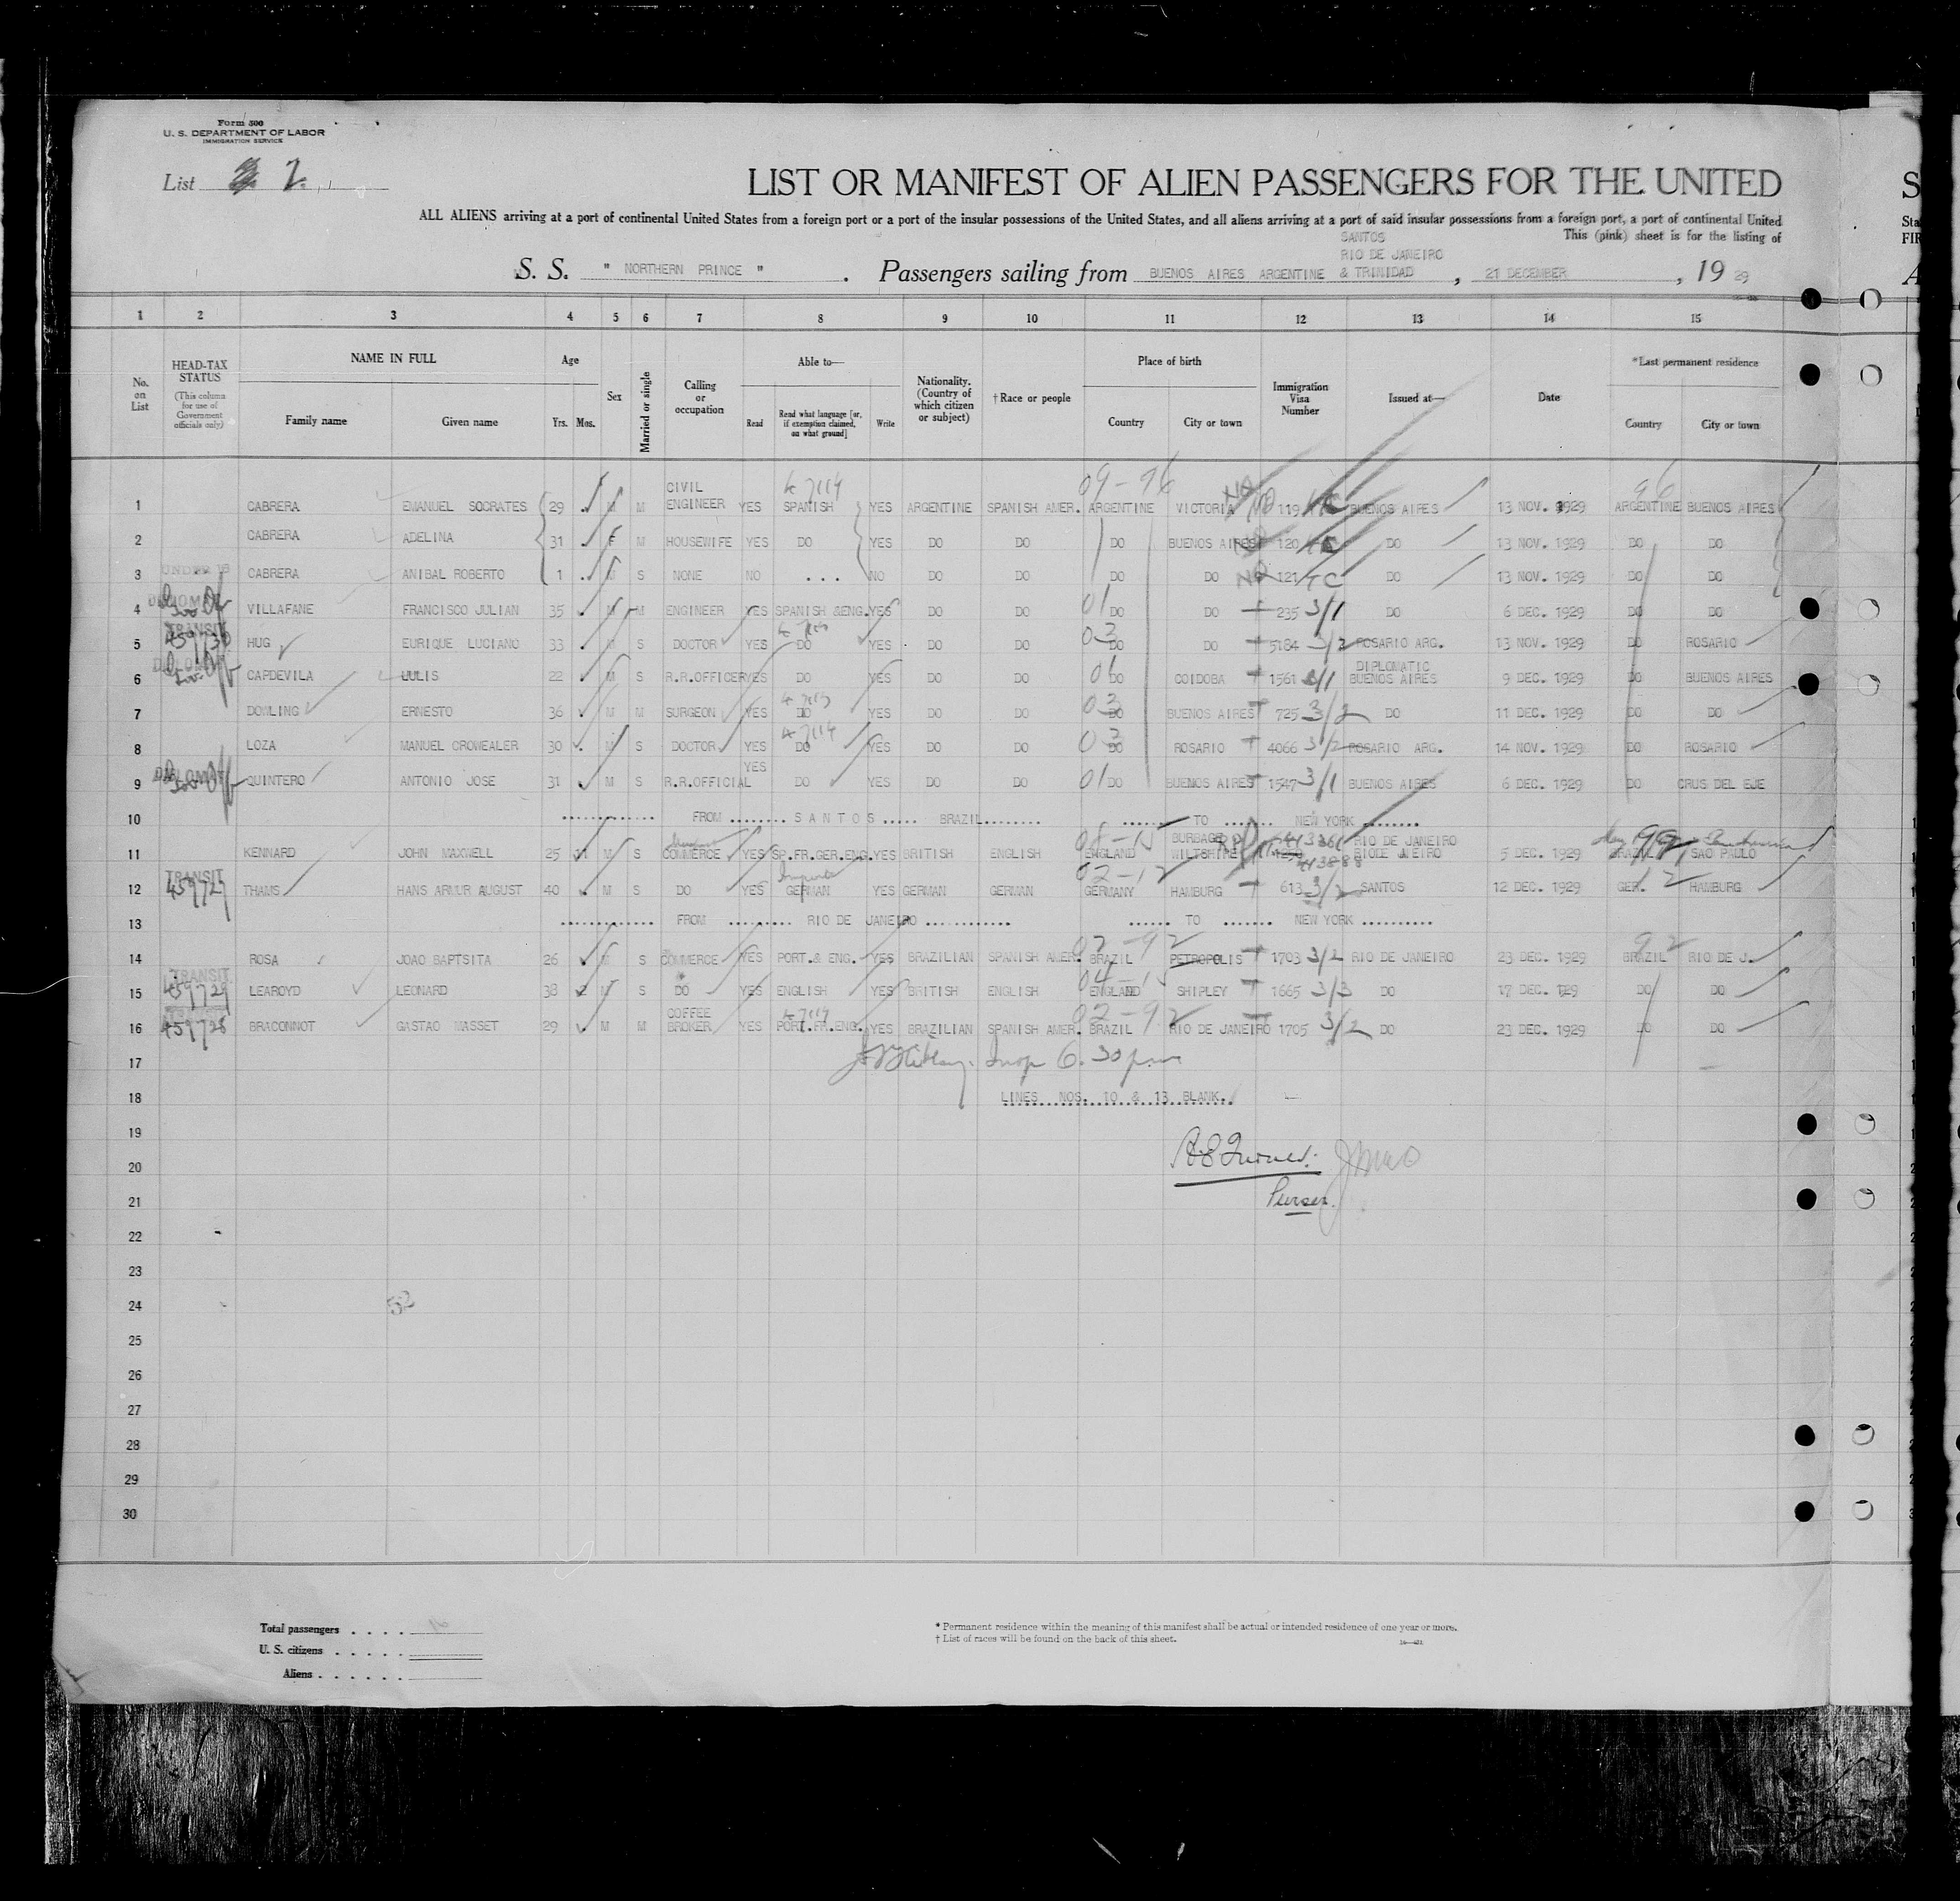 Form 500
U. S. DEPARTMENT OF LABOR
IMMIGRATION SERVICE
List 2.
LIST OR MANIFEST OF ALIEN PASSENGERS FOR THE UNITED
ALL ALIENS arriving at a port of continental United States from a foreign port or a port of the insular possessions of the United States, and all aliens arriving at a port of said insular possessions from a foreign port, a port of continental United
This (pink) sheet is for the listing of
SANTOS
RIO DE JANEIRO
S. S. " NORTHERN PRINCE " . Passengers sailing from BUENOS AIRES ARGENTINE & TRINIDAD , 21 DECEMBER , 19 29
1 2 3 4 5 6 7 8 9 10 11 12 13 14 15
No. on List
HEAD-TAX STATUS (This column for use of Government officials only)
NAME IN FULL
Family name
Given name
Age
Yrs. Mos.
Sex
Married or single
Calling or occupation
Able to—
Read
Read what language [or, if exemption claimed, on what ground]
Write
Nationality. (Country of which citizen or subject)
† Race or people
Place of birth
Country
City or town
Immigration Visa Number
Issued at—
Date
*Last permanent residence
Country
City or town
1 CABRERA EMANUEL SOCRATES 29 M M CIVIL ENGINEER YES SPANISH YES ARGENTINE SPANISH AMER. ARGENTINE 09-96 VICTORIA 119 TC BUENOS AIRES 13 NOV. 1929 ARGENTINE 96 BUENOS AIRES
2 CABRERA ADELINA 31 F M HOUSEWIFE YES DO YES DO DO DO BUENOS AIRES 120 DO 13 NOV. 1929 DO DO
3 UNDER 16 CABRERA ANIBAL ROBERTO 1 M S NONE NO ... NO DO DO DO DO NO 121 TC DO 13 NOV. 1929 DO DO
4 DIPLOMAT VILLAFANE FRANCISCO JULIAN 35 M M ENGINEER YES SPANISH &ENG. YES DO DO 01 DO DO 235 3/1 DO 6 DEC. 1929 DO DO
5 TRANSIT 459730 HUG EURIQUE LUCIANO 33 M S DOCTOR YES DO YES DO DO 03 DO DO 5184 3/2 ROSARIO ARG. 13 NOV. 1929 DO ROSARIO
6 DIPLOMAT CAPDEVILA JULIS 22 M S R.R.OFFICER YES DO YES DO DO 01 DO COIDOBA 1561 3/1 DIPLOMATIC BUENOS AIRES 9 DEC. 1929 DO BUENOS AIRES
7 DOWLING ERNESTO 36 M M SURGEON YES DO YES DO DO 03 DO BUENOS AIRES 725 3/2 DO 11 DEC. 1929 DO DO
8 LOZA MANUEL CROWEALER 30 M S DOCTOR YES DO YES DO DO 03 DO ROSARIO 4066 3/2 ROSARIO ARG. 14 NOV. 1929 DO ROSARIO
9 DIPLOMAT QUINTERO ANTONIO JOSE 31 M S R.R.OFFICIAL YES DO YES DO DO 01 DO BUENOS AIRES 1547 3/1 BUENOS AIRES 6 DEC. 1929 DO CRUS DEL EJE
10 FROM ........ SANTOS ..... BRAZIL........ ...... TO ....... NEW YORK ........
11 KENNARD JOHN MAXWELL 25 11 M S COMMERCE YES SP.FR.GER.ENG. YES BRITISH ENGLISH ENGLAND BURBAGE WILTSHIRE RIO DE JANEIRO 5 DEC. 1929 BRAZIL SAO PAULO
12 TRANSIT 459727 THAMS HANS ARMUR AUGUST 40 M S DO YES GERMAN YES GERMAN GERMAN GERMANY HAMBURG 613 3/2 SANTOS 12 DEC. 1929 GER. HAMBURG
13 FROM ......... RIO DE JANEIRO ............ ...... TO ....... NEW YORK ..........
14 ROSA JOAO BAPTSITA 26 M S COMMERCE YES PORT.& ENG. YES BRAZILIAN SPANISH AMER. 02-92 BRAZIL PETROPOLIS 1703 3/2 RIO DE JANEIRO 23 DEC. 1929 BRAZIL 92 RIO DE J.
15 TRANSIT 459729 LEAROYD LEONARD 38 2 M S DO YES ENGLISH YES BRITISH ENGLISH 04-15 ENGLAND SHIPLEY 1665 3/3 DO 17 DEC. 1929 DO DO
16 459728 BRACONNOT GASTAO MASSET 29 M M COFFEE BROKER YES PORT.FR.ENG. YES BRAZILIAN SPANISH AMER. 02-92 BRAZIL RIO DE JANEIRO 1705 3/2 DO 23 DEC. 1929 DO DO
17 Insp 6.30 pm
18 LINES NOS. 10 & 13 BLANK.
19
20
21 Purser.
22
23
24 52
25
26
27
28
29
30
Total passengers . . . .
U. S. citizens . . . . .
Aliens . . . . . .
* Permanent residence within the meaning of this manifest shall be actual or intended residence of one year or more.
† List of races will be found on the back of this sheet.